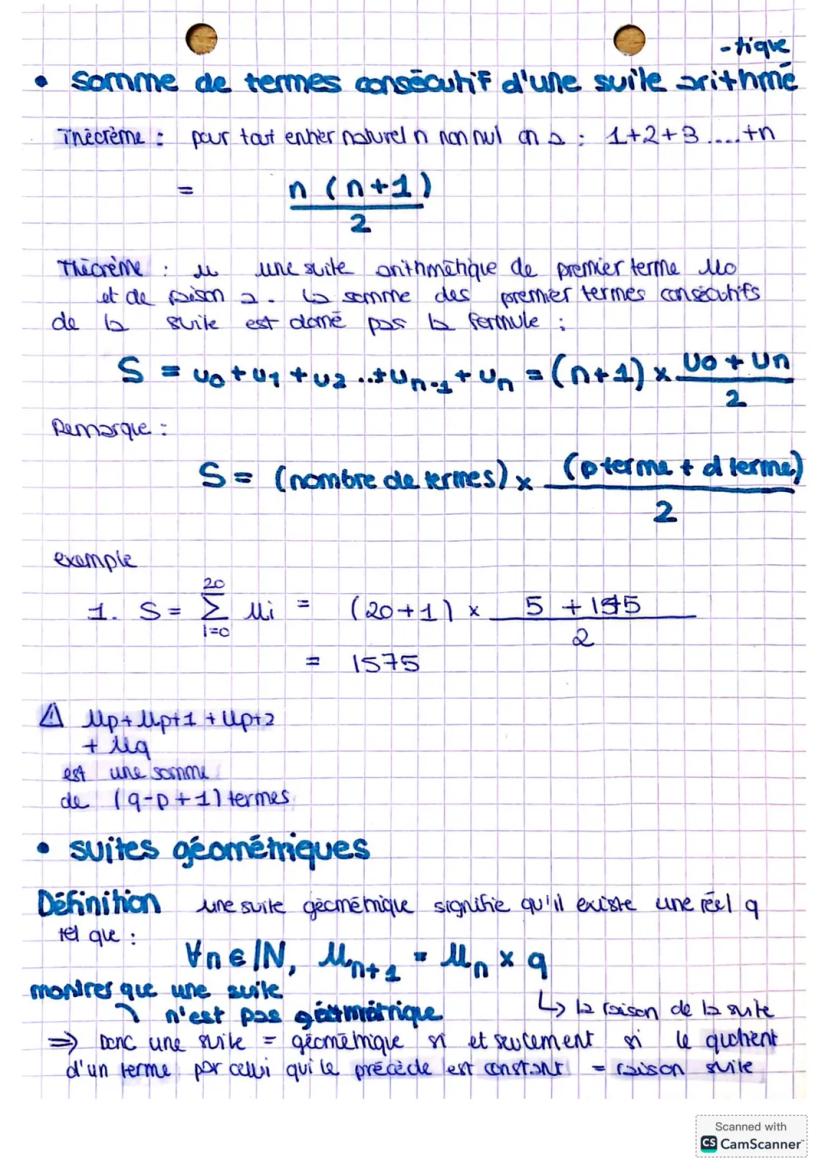 -tique
• somme de termes consécutif d'une suite arithmé
Théorème : pour tout entier naturel n non nul on a : 1+2+3....+n
= n (n+1)
2
Théorème : u une suite arithmétique de premier terme u0
et de raison a. La somme des premier termes consécutifs
de la suite est donné pas la formule :
S = u0 + u1 + u2 ..+ un-1 + un = (n+1) x u0 + un
2
Remarque :
S = (nombre de termes) x (p terme + d terme)
2
exemple
20
1. S = Σ ui = (20+1) x 5 + 145
i=0 2
= 1575
⚠ up + up+1 + up+2
+ uq
est une somme
de (q-p+1) termes
• suites géométriques
Définition une suite géométrique signifie qu'il existe une réel q
tel que :
∀n∈ℕ, un+1 = un x q
montrer que une suite
n'est pas géométrique
↳ la raison de la suite
⇒ Donc une suite = géométrique si et seulement si le quotient
d'un terme par celui qui le précède est constant = raison suite
Scanned with
CS CamScanner